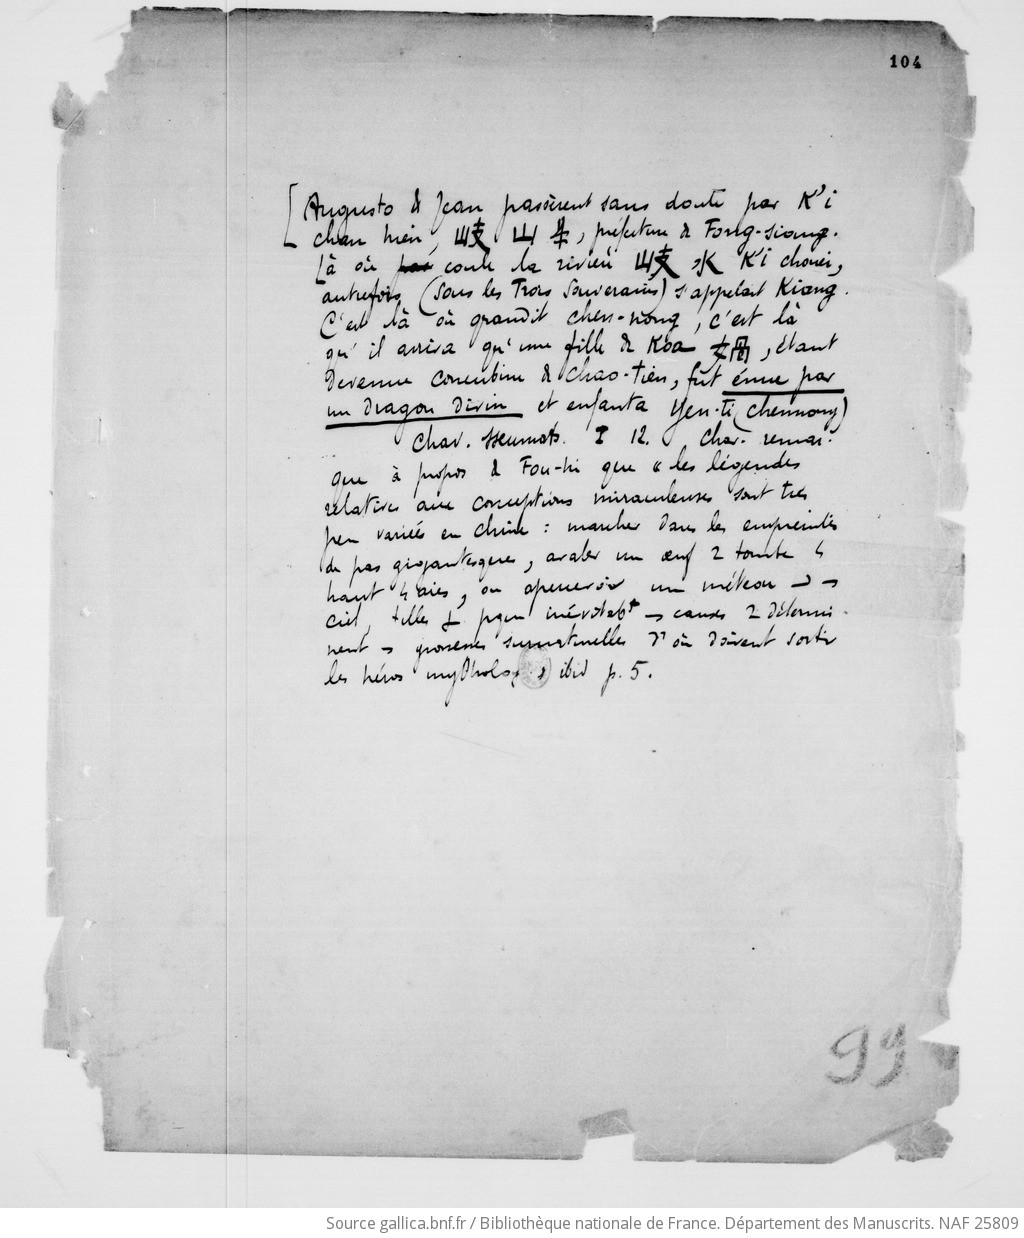 104
[Augusto & Jean passèrent sans doute par K'i
chan hien, 岐山県, préfecture de Fong-siang.
Là où coule la rivière 岐水 K'i chouei,
autrefois (sous les Trois Souverains) s'appelait Kiang.
C'est là où grandit chen-nong, c'est là
qu'il arriva qu'une fille de Koa 女咼, étant
devenue concubine de Chao-tien, fut émue par
un dragon divin et enfanta Yen-ti (chennong)
Chav. sseumats. I 12. Chav. remar-
que à propos de Fou-hi que « les légendes
relatives aux conceptions miraculeuses sont très
peu variées en Chine : marcher dans les empreintes
de pas gigantesques, avaler un œuf tombé
haut airs, ou apercevoir un météore
ciel, telles causes détermi-
nent grossesses surnaturelles d'où doivent sortir
les héros mytholog ibid p. 5.
99
Source gallica.bnf.fr / Bibliothèque nationale de France. Département des Manuscrits. NAF 25809